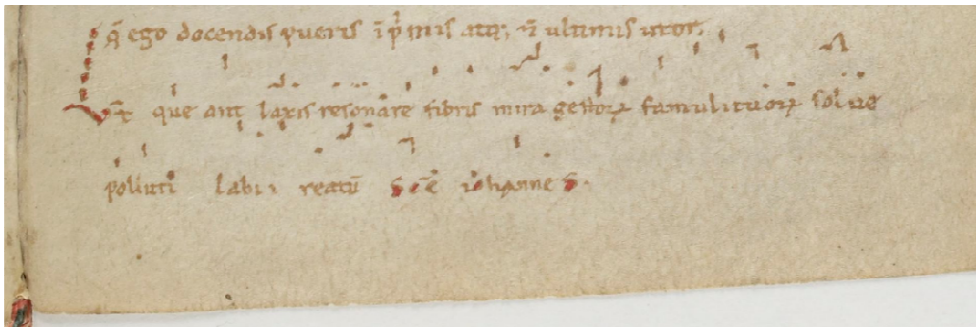 q̄ ego docendis pueris ī p̄mis atq; ī ultimis utor.
Vt que ant laxis resonare fibris mira gestorꝝ famulituorꝝ solue
polluti labii reatū sc̄e iohannes.